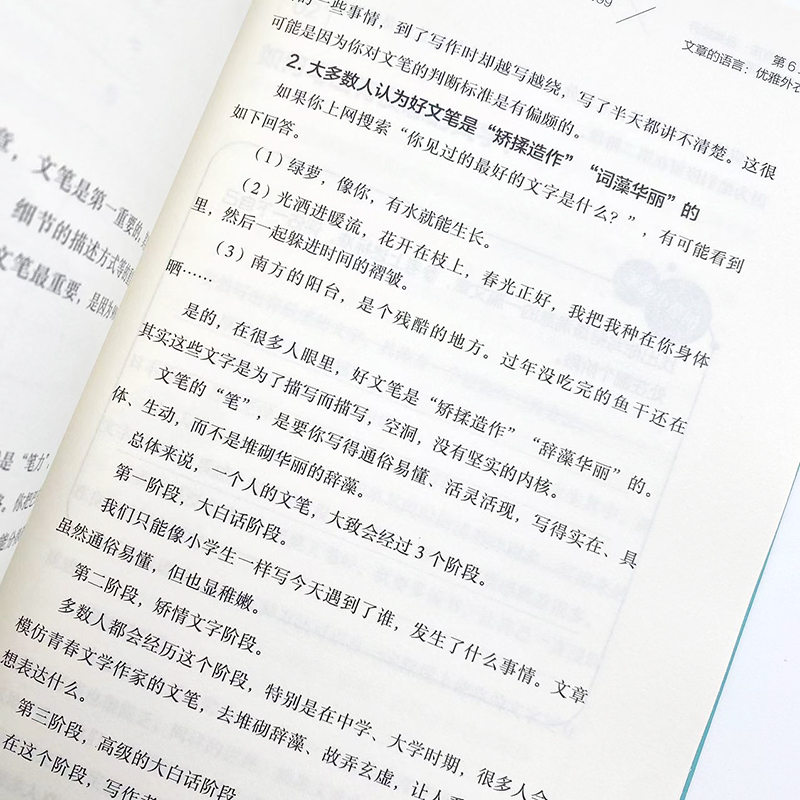 章，文笔是第一重要的，
细节的描述方式等
文笔最重要，是因为
是“笔力”
你把
能分
99
第6
文章的语言：优雅外衣
的一些事情，到了写作时却越写越绕，写了半天都讲不清楚。这很
可能是因为你对文笔的判断标准是有偏颇的。
2. 大多数人认为好文笔是“矫揉造作”“词藻华丽”的
如果你上网搜索“你见过的最好的文字是什么？”，有可能看到
如下回答。
（1）绿萝，像你，有水就能生长。
（2）光洒进暖流，花开在枝上，春光正好，我把我种在你身体
里，然后一起躲进时间的褶皱。
（3）南方的阳台，是个残酷的地方。过年没吃完的鱼干还在
晒……
是的，在很多人眼里，好文笔是“矫揉造作”“辞藻华丽”的。
其实这些文字是为了描写而描写，空洞，没有坚实的内核。
文笔的“笔”，是要你写得通俗易懂、活灵活现，写得实在、具
体、生动，而不是堆砌华丽的辞藻。
总体来说，一个人的文笔，大致会经过3个阶段。
第一阶段，大白话阶段。
我们只能像小学生一样写今天遇到了谁，发生了什么事情。文章
虽然通俗易懂，但也显稚嫩。
第二阶段，矫情文字阶段。
多数人都会经历这个阶段，特别是在中学、大学时期，很多人会
模仿青春文学作家的文笔，去堆砌辞藻、故弄玄虚，让人
想表达什么。
第三阶段，高级的大白话阶段
在这个阶段，写作者